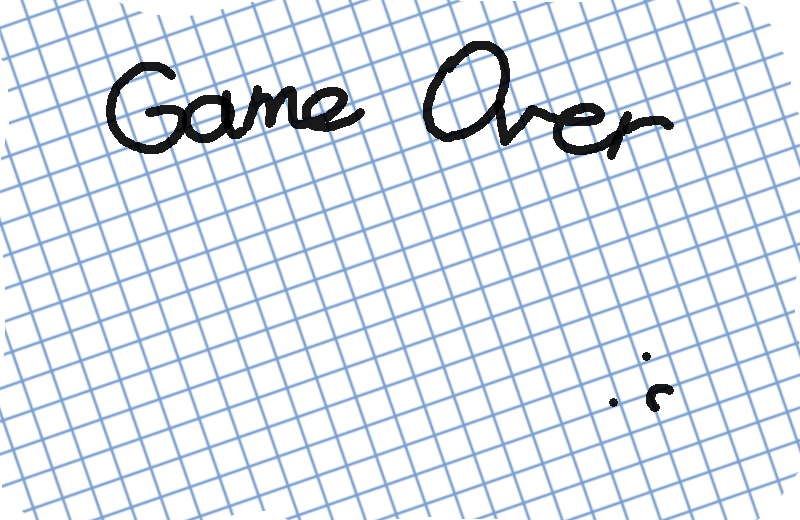 Game Over